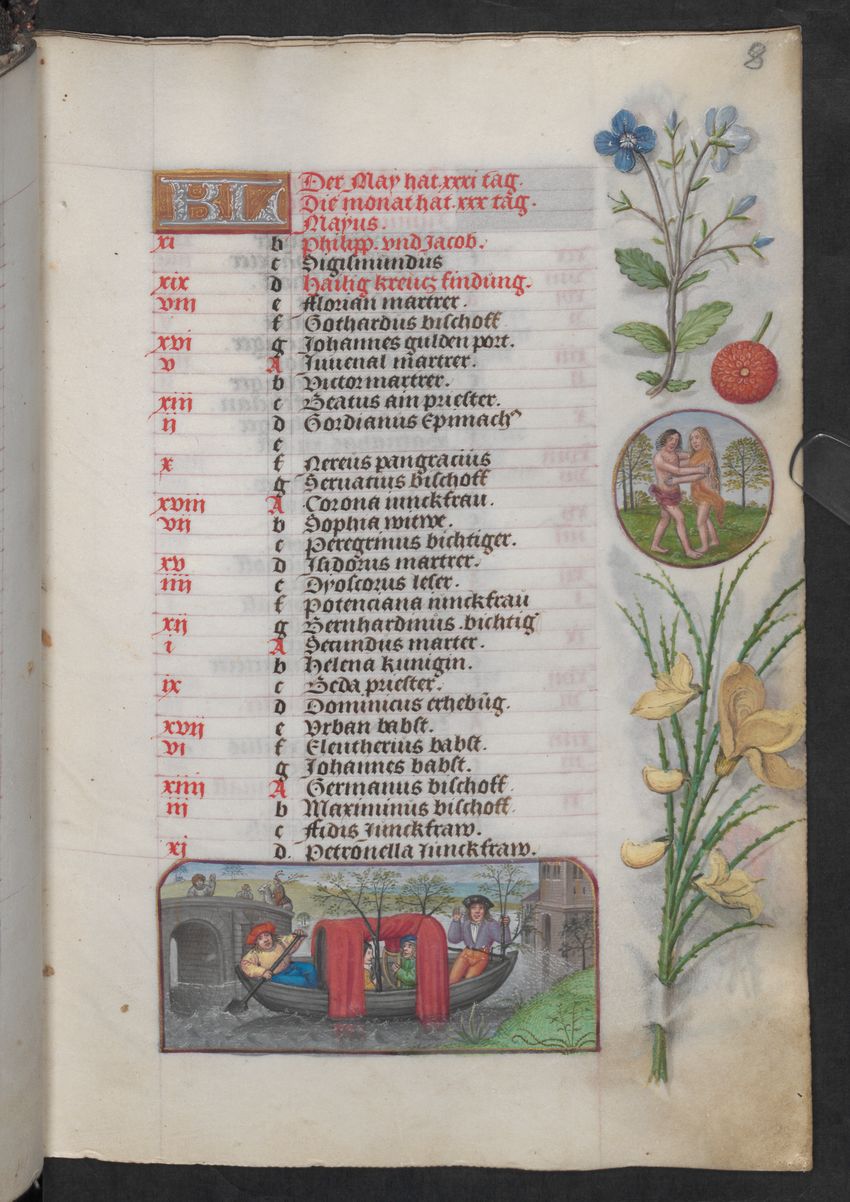 8
KL Der May hat xxxi tag.
Die monat hat xxx tag.
Mayus.
xi b Philipp. vnd Jacob.
c Sigismundus
xix d Hailig kreucz findung.
viii e Florian martrer.
f Gothardus bischoff
xvi g Johannes gulden port.
v A Juuenal martrer.
b Victor martrer.
xiii c Beatus ain priester.
ij d Gordianus Epimach⁹
e
x f Nereus pangracius
g Seruatius bischoff
xviii A Corona iunckfrau.
vij b Sophia witwe.
c Peregrinus bichtiger.
xv d Isidorus martrer.
iiii e Dyoscorus leser.
f Potenciana iunckfrau
xij g Bernhardinus .bichtig
i A Secundus marter.
b Helena kunigin.
ix c Beda priester.
d Dominicus erhebūg.
xvij e Vrban babst.
vi f Eleutherius babst.
g Johannes babst.
xiiii A Germanus bischoff.
iij b Maximinus bischoff.
c Fidis Junckfraw.
xj d. Petronella Junckfraw.